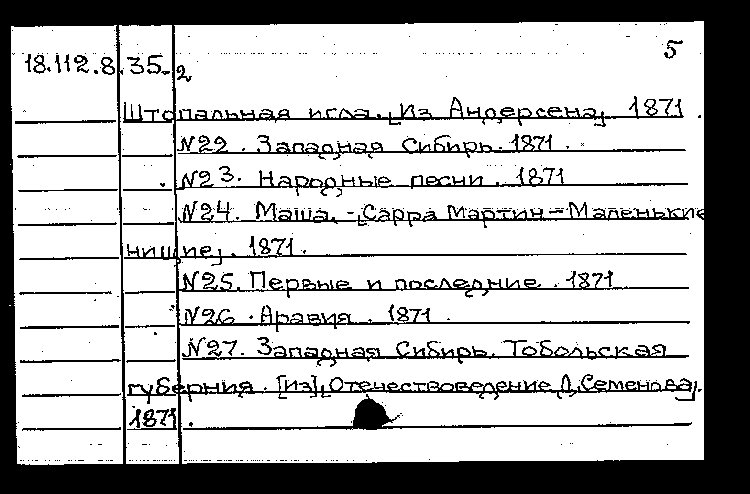 5
18.112.8.35.-2
Штопальная игла. [Из Андерсена] 1871.
N22. Западная Сибирь. 1871.
N23. Народные песни. 1871
N24. Маша. - [Сарра Мартин - Маленькие
нищие]. 1871.
N25. Первые и последние. 1871
N26. Аравия. 1871.
N27. Западная Сибирь. Тобольская
губерния. [из] [Отечествоведение Д. Семенова].
1871.